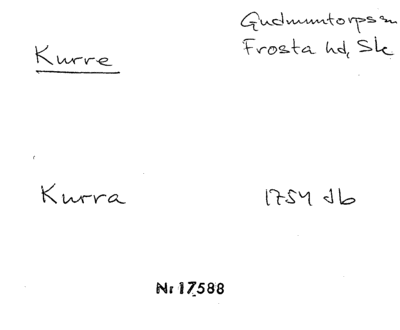 Gudmuntorps sn
Kurre
Frosta hd, Sk
Kurra
1754 db
Nr 17588